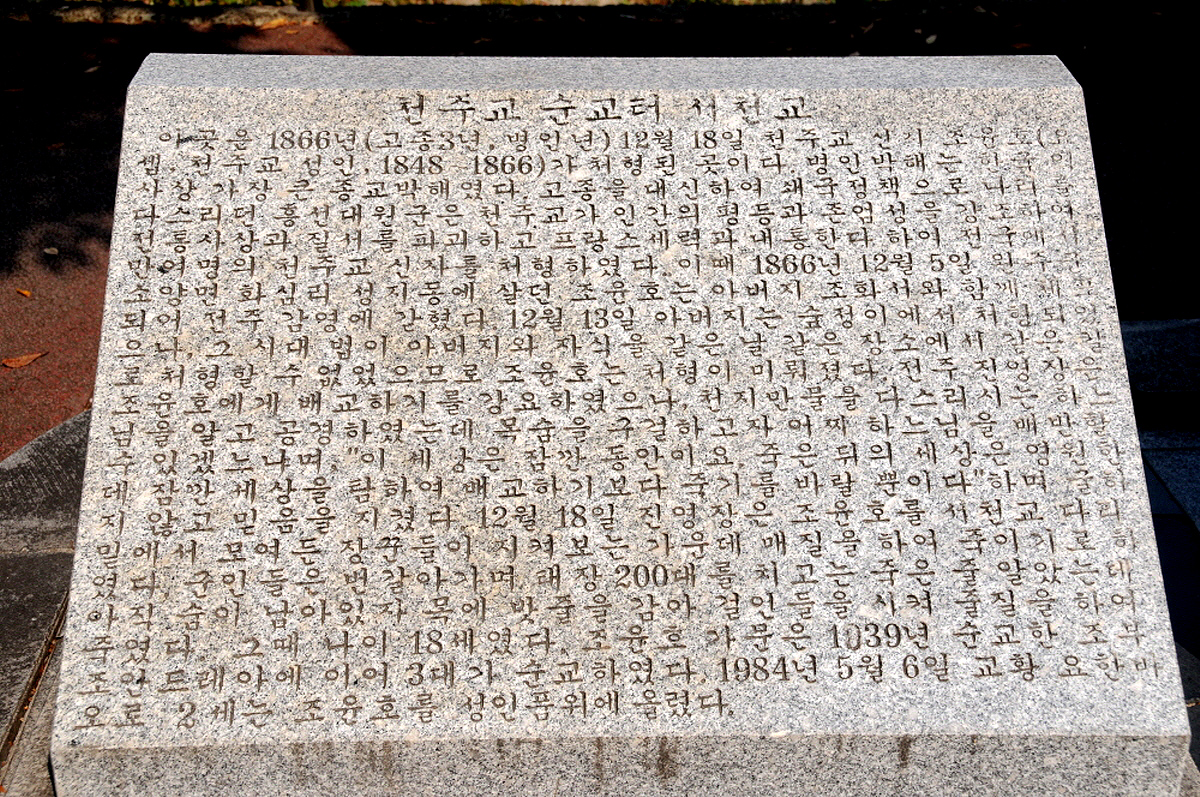 천주교 순교터 서천교
이곳은 1866년(고종3년, 병인년) 12월 18일 천주교 신자 조윤호(요
셉, 천주교 성인, 1848 1866)가 처형된 곳이다. 병인박해는 한국
사상 가장 큰 종교박해였다. 고종을 대신하여 쇄국정책으로 나라를
다스리던 흥선대원군은 천주교가 인간의 평등과 존엄성을 강조하여
전통사상과 질서를 파괴하고 프랑스세력과 내통한다 하여 전국에서
만여명의 천주교 신자를 처형하였다. 이때 1866년 12월 5일 완주군
소양면 화심리 성지동에 살던 조윤호는 아버지 조화서와 함께 체포
되어 전주 감영에 갇혔다. 12월 13일 아버지는 숲정이에서 처형되었
으나, 그 시대 법이 아버지와 자식을 같은 날 같은 장소에서 칼
로 처형할 수 없었으므로 조윤호는 처형이 미뤄졌다. 전주 진영장은
조윤호에게 배교하기를 강요하였으나, 천지만물을 다스리시는 하느
님을 알고 공경하였는데 목숨을 구걸하고자 어찌 하느님을 배반할
수 있겠느냐며, "이 세상은 잠깐 동안이요, 죽은 뒤의 세상은 영원한
데 잠깐 세상을 탐하여 배교하기보다 죽기를 바랄 뿐이다"하며 굴하
지 않고 믿음을 지켰다. 12월 18일 진영장은 조윤호를 서천교 다리
밑에서 모여든 장꾼들이 지켜보는 가운데 매질을 하여 죽이기로 하
였다. 군인들은 번갈아가며 태장 200대를 치고는 죽은 줄 알았는데
아직 숨이 남아있자 목에 밧줄을 감아 걸인들을 시켜 줄질을 하여
주였다. 그때 나이 18세였다. 조윤호 가문은 1039년 순교한 조부
조안드레아에 이어 3대가 순교하였다. 1984년 5월 6일 교황 요한바
오로 2세는 조윤호를 성인품위에 올렸다.